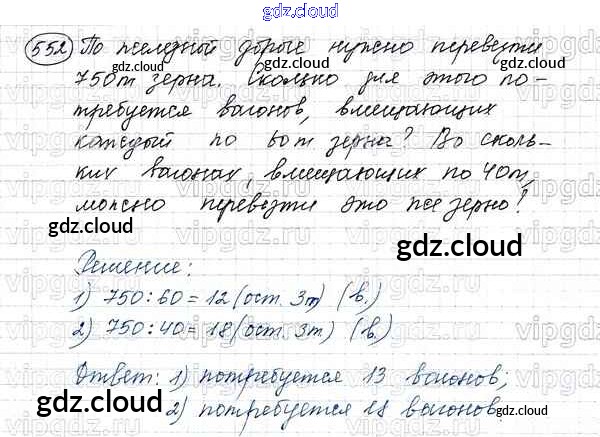 gdz.cloud
552 По железной дороге нужно перевезти
750т зерна. Сколько для этого по-
gdz.cloud
требуется вагонов, вмещающих
каждый по 60т зерна? Во сколь-
ких вагонах, вмещающих по 40т,
можно перевезти это же зерно?
gdz.cloud
gdz.cloud
Решение:
1) 750:60=12(ост. 3т) (в.)
2) 750:40=18(ост. 3т) (в.)
gdz.cloud
Ответ: 1) потребуется 13 вагонов;
gdz.cloud
2) потребуется вагонов.